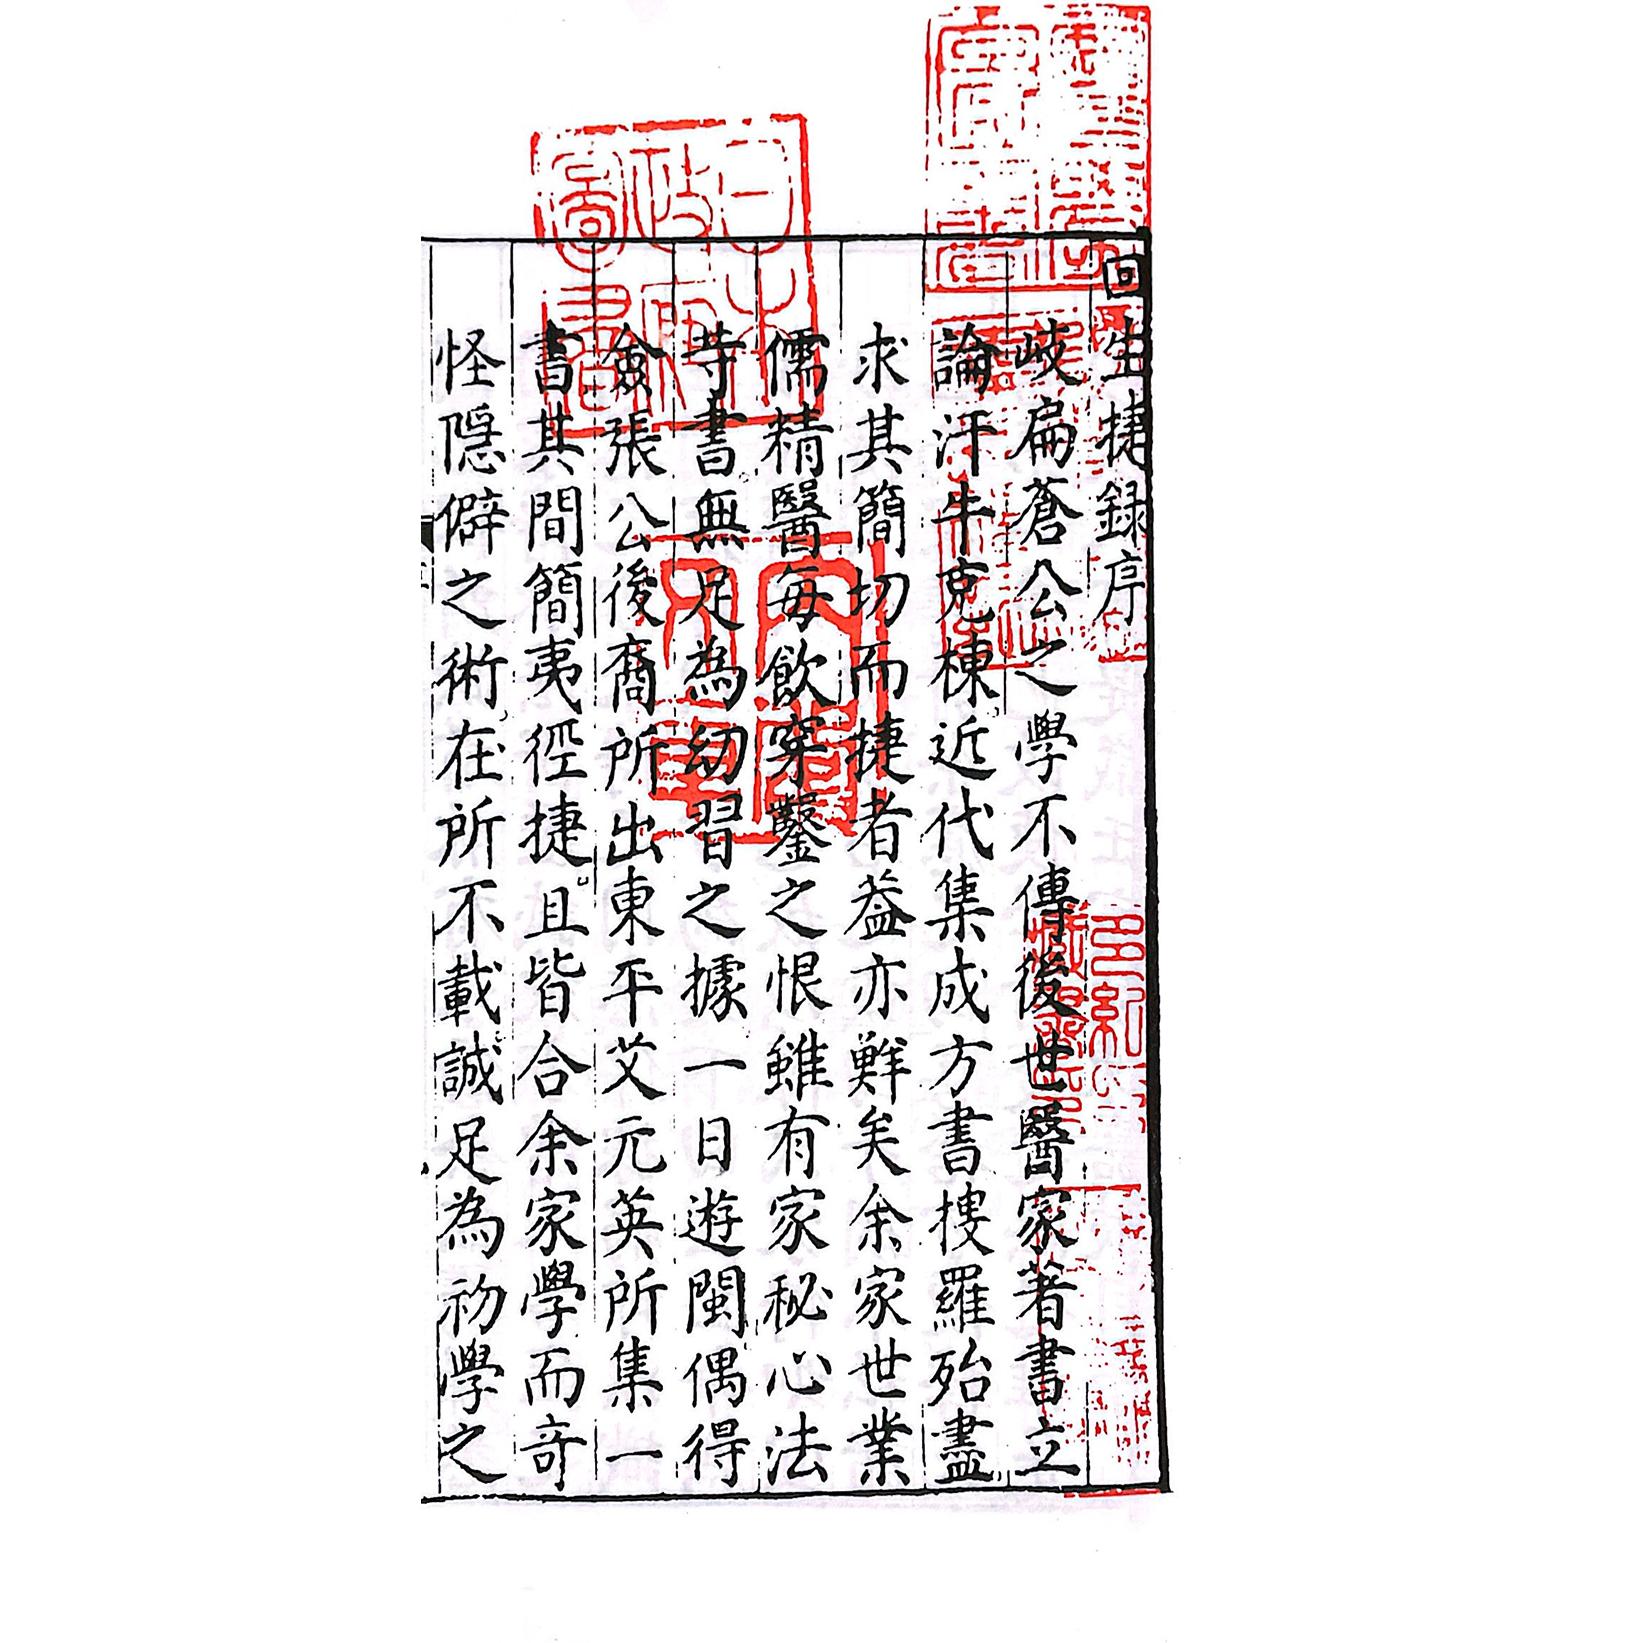 回生捷録序
岐扁蒼公之學不傳後世醫家著書立
論汗牛充棟近代集成方書摟羅殆盡
求其簡切而捷者益亦鮮矣余家世業
儒精醫每飲穿鑿之恨雖有家秘心法
等書無足為幼習之據一日遊閩偶得
僉張公後裔所出東平艾元英所集一
書其間簡夷徑捷且皆合余家學而竒
怪隱僻之術在所不載誠足為初學之
日本
政府
圖書